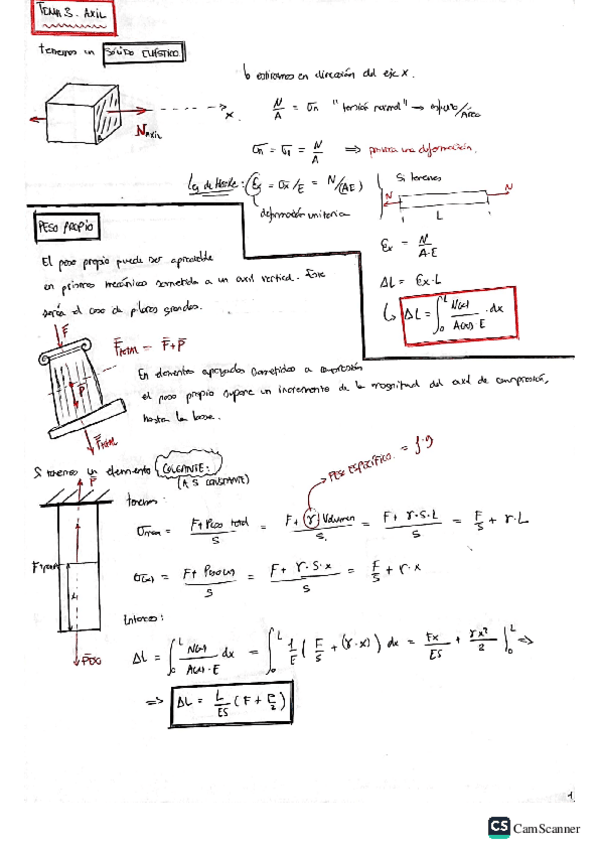 TEMA 3. AXIL
tenemos un SÓLIDO ELÁSTICO
↳ estiramos en dirección del eje x.
N/A = σn "tensión normal" → esfuerzo/Área
N AXIL
x
A
σn = σx = N/A ⇒ provoca una deformación.
Ley de Hooke: εx = σx/E = N/(AE)
deformación unitaria
Si tenemos
N N
L
εx = N/A·E
ΔL = εx·L
↳ ΔL = ∫₀ᴸ N(x)/A(x)·E · dx
PESO PROPIO
El peso propio puede ser apreciable
en prismas mecánicos sometida a un axil vertical. Este
sería el caso de pilares grandes.
F
F TOTAL = F + P
P
F TOTAL
En elementos apoyados sometidos a compresión
el peso propio supone un incremento de la magnitud del axil de compresión,
hasta la base.
Si tenemos un elemento COLGANTE:
(A S CONSTANTE)
PESO ESPECÍFICO = ρ·g
tenemos:
σmax = F + Peso total/S = F + γ·Volumen/S = F + γ·S·L/S = F/S + γ·L
σ(x) = F + Peso(x)/S = F + γ·S·x/S = F/S + γ·x
Entonces:
ΔL = ∫₀ᴸ N(x)/A(x)·E dx = ∫₀ᴸ 1/E (F/S + (γ·x)) dx = Fx/ES + γx²/2 |₀ᴸ ⇒
⇒ ΔL = L/ES (F + P/2)
1
CS CamScanner